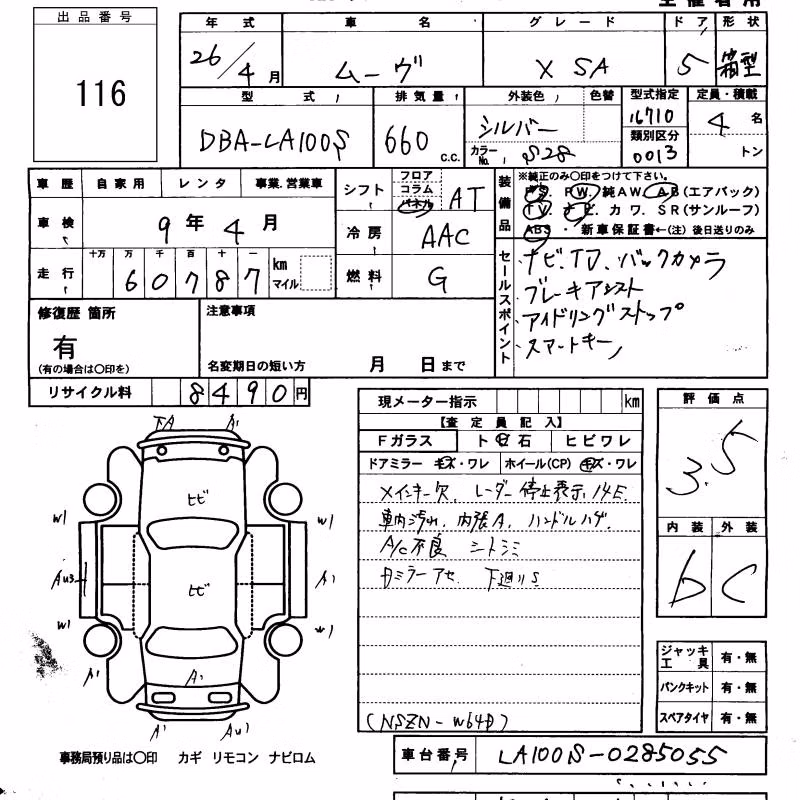 出品番号
116
年式 車名 グレード ドア 形状
26/4月 ムーヴ X SA 5 箱型
型式 排気量 外装色 色替 型式指定 定員・積載
DBA-LA100S 660 c.c. シルバー 16710 4名
カラーNo. S28 類別区分 0013 トン
車歴 自家用 レンタ 事業.営業車
車検 9年4月
走行 十万 万 千 百 十 一
60787 km マイル
シフト フロア コラム パネル AT
冷房 AAC
燃料 G
装備品
※純正のみ〇印をつけて下さい。
PS. PW. 純AW. AB(エアバック)
TV. ナビ. カワ. SR(サンルーフ)
ABS ・ 新車保証書←(注) 後日送りのみ
セールスポイント
ナビ、TV、バックカメラ
ブレーキアシスト
アイドリングストップ
スマートキー
修復歴 箇所
有
(有の場合は〇印を)
注意事項
名変期日の短い方 月 日まで
リサイクル料 8490円
現メーター指示 km
【査定員記入】
Fガラス ト 石 ヒビワレ
ドアミラー キズ・ワレ ホイール(CP) キズ・ワレ
メインキー欠. レーダー停止表示.
車内汚れ. 内張A. ハンドルハゲ.
A/C不良 シートシミ
ミラーアセ. 下廻りS
(NSZN-W64D)
評価点
3.5
内装 外装
b C
ジャッキ工具 有・無
パンクキット 有・無
スペアタイヤ 有・無
A'
ヒビ
W1 W1
AU3 A1
ヒビ
W1
A' A' A'
A' AU1
事務局預り品は〇印 カギ リモコン ナビロム
車台番号 LA100S-0285055